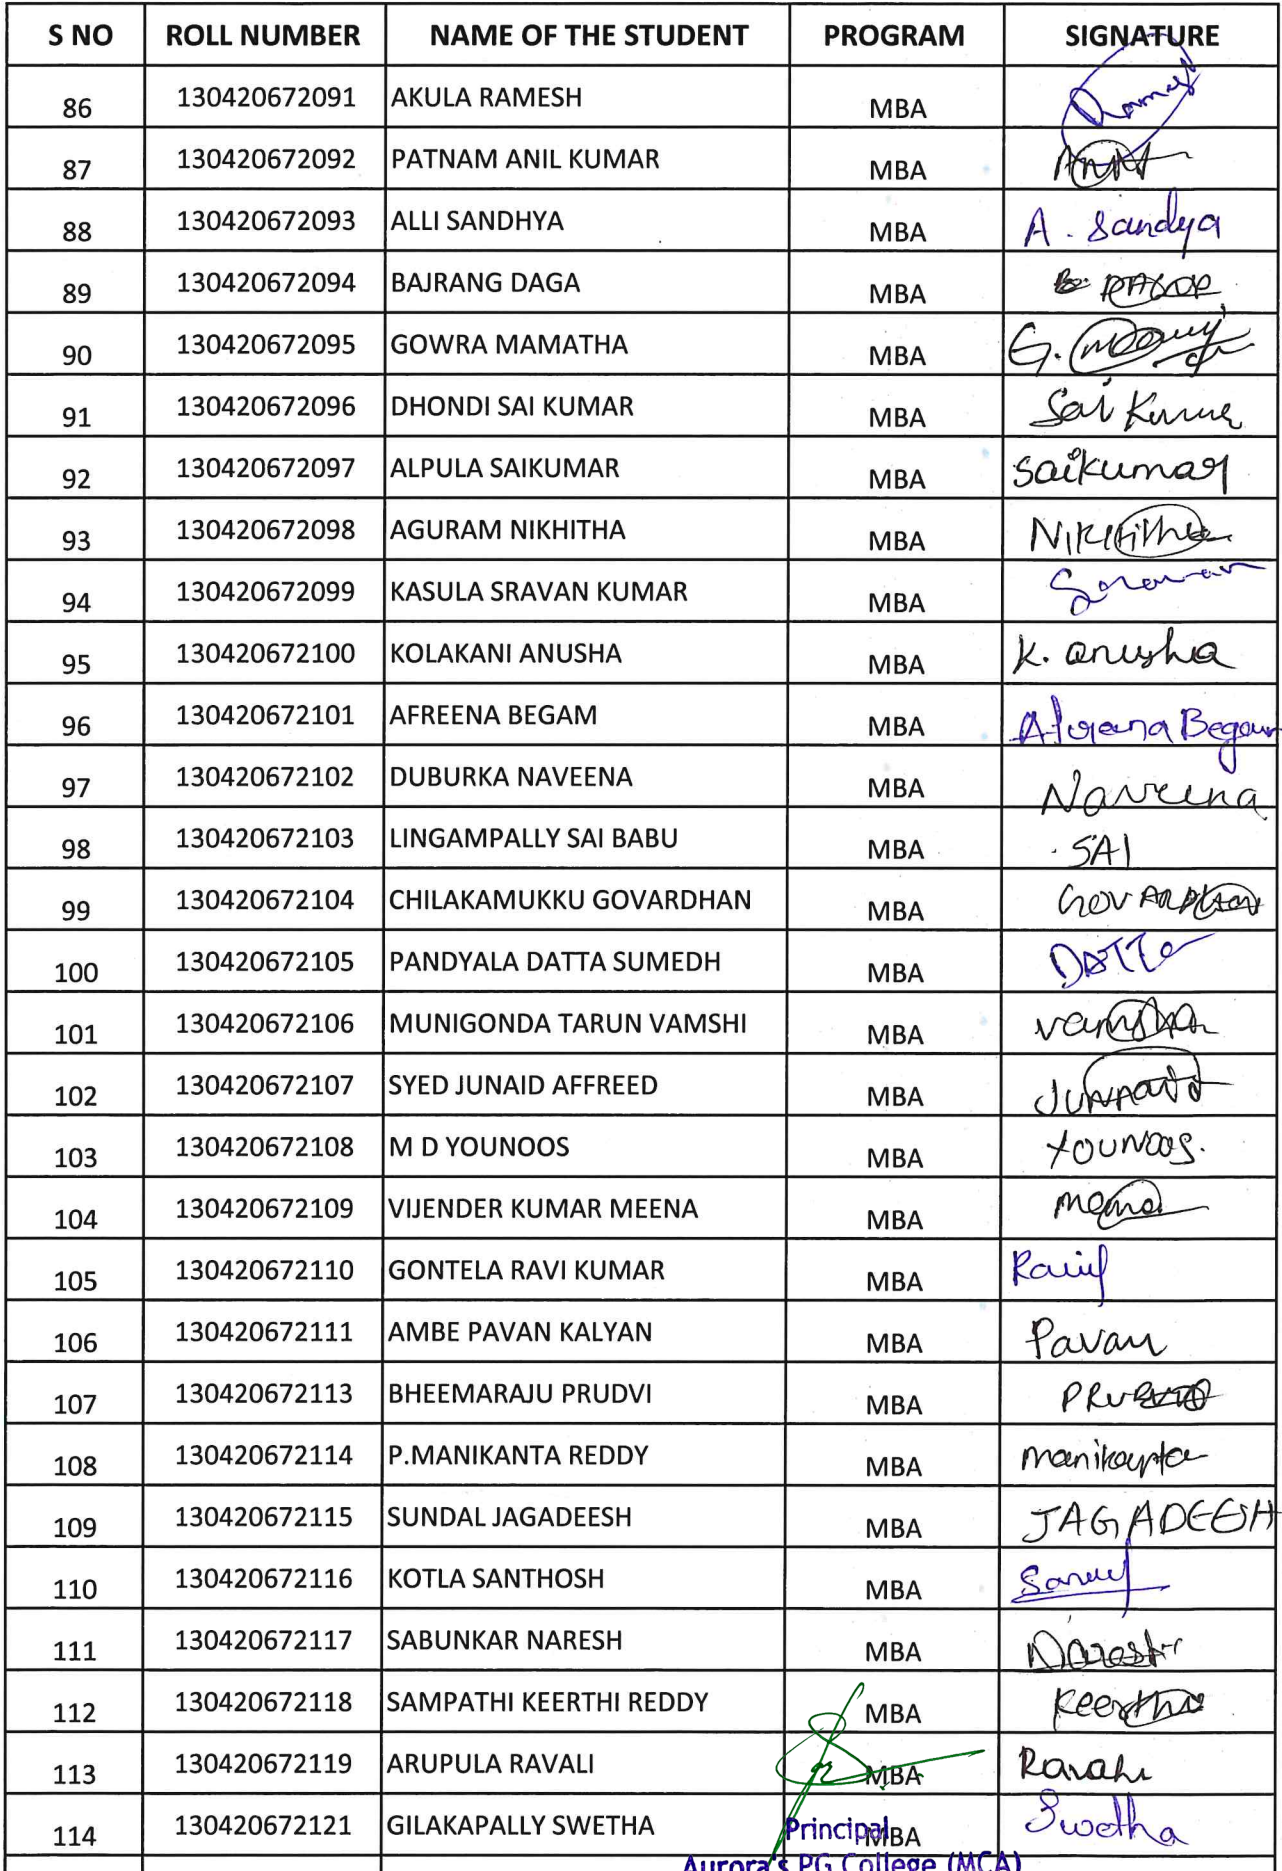 S NO ROLL NUMBER NAME OF THE STUDENT PROGRAM SIGNATURE
86 130420672091 AKULA RAMESH MBA Ramesh
87 130420672092 PATNAM ANIL KUMAR MBA
88 130420672093 ALLI SANDHYA MBA A. Sandya
89 130420672094 BAJRANG DAGA MBA
90 130420672095 GOWRA MAMATHA MBA G.
91 130420672096 DHONDI SAI KUMAR MBA Sai Kumar
92 130420672097 ALPULA SAIKUMAR MBA Saikumar
93 130420672098 AGURAM NIKHITHA MBA Nikhitha
94 130420672099 KASULA SRAVAN KUMAR MBA Sravan
95 130420672100 KOLAKANI ANUSHA MBA K. anusha
96 130420672101 AFREENA BEGAM MBA Afreena Begam
97 130420672102 DUBURKA NAVEENA MBA Naveena
98 130420672103 LINGAMPALLY SAI BABU MBA SAI
99 130420672104 CHILAKAMUKKU GOVARDHAN MBA GOVARDHAN
100 130420672105 PANDYALA DATTA SUMEDH MBA DATTA
101 130420672106 MUNIGONDA TARUN VAMSHI MBA
102 130420672107 SYED JUNAID AFFREED MBA JUNAID
103 130420672108 M D YOUNOOS MBA YOUNOOS.
104 130420672109 VIJENDER KUMAR MEENA MBA meena
105 130420672110 GONTELA RAVI KUMAR MBA Ravi
106 130420672111 AMBE PAVAN KALYAN MBA Pavan
107 130420672113 BHEEMARAJU PRUDVI MBA PRUDVI
108 130420672114 P.MANIKANTA REDDY MBA manikanta
109 130420672115 SUNDAL JAGADEESH MBA JAGADEESH
110 130420672116 KOTLA SANTHOSH MBA
111 130420672117 SABUNKAR NARESH MBA Naresh
112 130420672118 SAMPATHI KEERTHI REDDY MBA Keerthi
113 130420672119 ARUPULA RAVALI MBA Ravali
114 130420672121 GILAKAPALLY SWETHA MBA Swetha
Principal
Aurora's PG College (MCA)